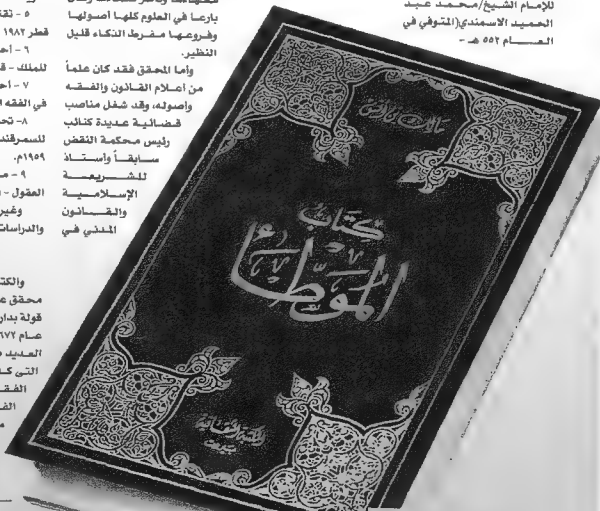 للإمام الشيخ/محمد عبد
الحميد الاسمندي(المتوفي في
العــــام ٥٥٢ هـ -
بارعا في العلوم كلها أصولها
وفروعها مفرط الذكاء قليل
النظير.
وأما المحقق فقد كان علماً
من أعلام القانون والفقه
وأصوله، وقد شغل مناصب
قضائية عديدة كنائب
رئيس محكمة النقض
سابقاً وأستاذ
للشريعة
الإسلامية
والقانون
المدني في
قطر ١٩٨٢
٦ - أحـ
للملك - قـ
٧ - أحـ
في الفقه ا
٨ - تحـ
للسمرقند
١٩٥٩م.
٩ - مـ
العقول -
وغير
والدراسات
والكتـ
محقق عـ
قولة بدار
عام ٦٧٢
العديد مـ
التى كـ
الفقـ
مالك بن أنس
كتاب
الموطأ
المكتبة الثقافية
بيروت